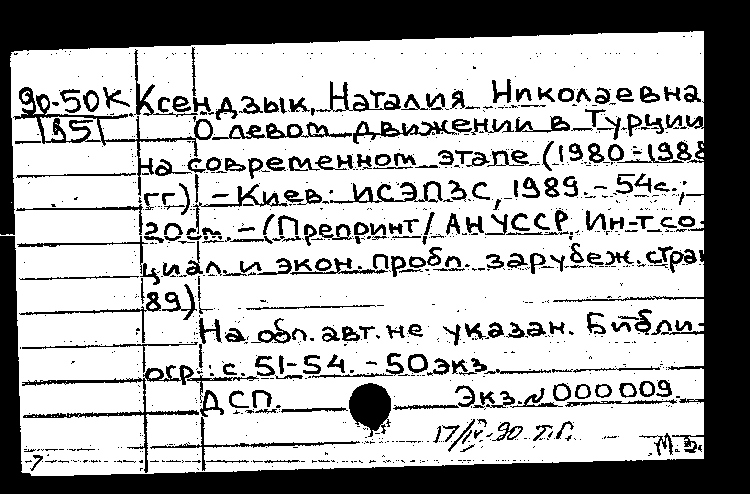 90-50К Ксендзык, Наталия Николаевна
1851 О левом движении в Турции
на современном этапе (1980-1988
гг). - Киев: ИСЭПЗС, 1989. - 54с.;
20см. - (Препринт/ АН УССР, Ин-т со-
циал. и экон. пробл. зарубеж. стран
89)
На обл. авт. не указан. Библи-
огр.: с. 51-54. - 50 экз.
ДСП. Экз. № 000009.
17/IV-90 Т.Г.
7 М.З.